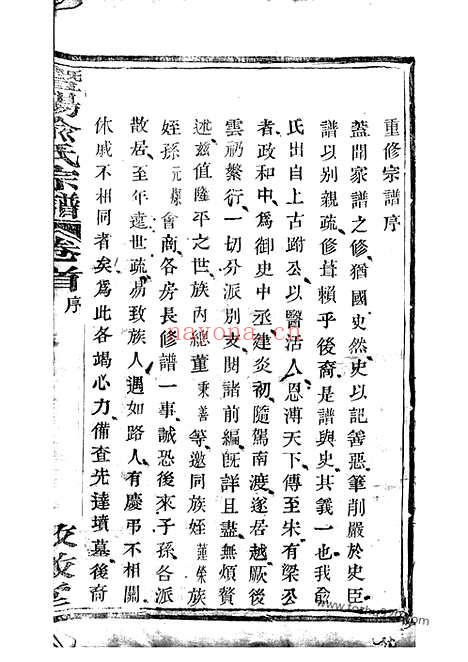 重修宗譜序
蓋聞家譜之修猶國史然史以記善惡筆削嚴於史臣
譜以別親疏修葺賴乎後裔是譜與史其義一也我俞
氏出自上古跗公以醫活人恩溥天下傳至宋有梁公
者政和中為御史中丞建炎初隨駕南渡遂居越厥後
雲礽繁衍一切分派別支閱諸前編旣詳且盡無煩贅
述茲值隆平之世族內總董秉善等邀同族姪蓮榮族
姪孫元 會商各房長修譜一事誠恐後來子孫各派
散居至年遠世疏易致族人遇如路人有慶弔不相關
休戚不相同者矣為此各竭心力備查先達墳墓後裔
暨陽俞氏宗譜 卷首 序
nayona.cn